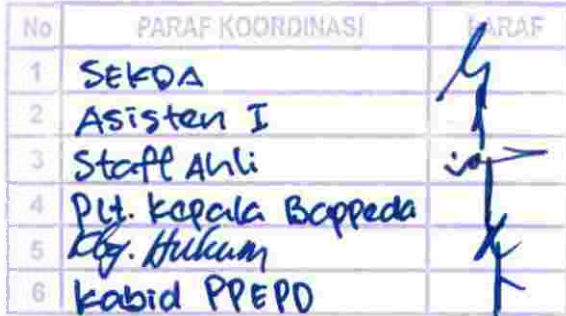 No PARAF KOORDINASI PARAF
1 SEKDA
2 Asisten I
3 Staff Ahli
4 Plt. Kepala Bappeda
5 Kbg. Hukum
6 Kabid PPEPD